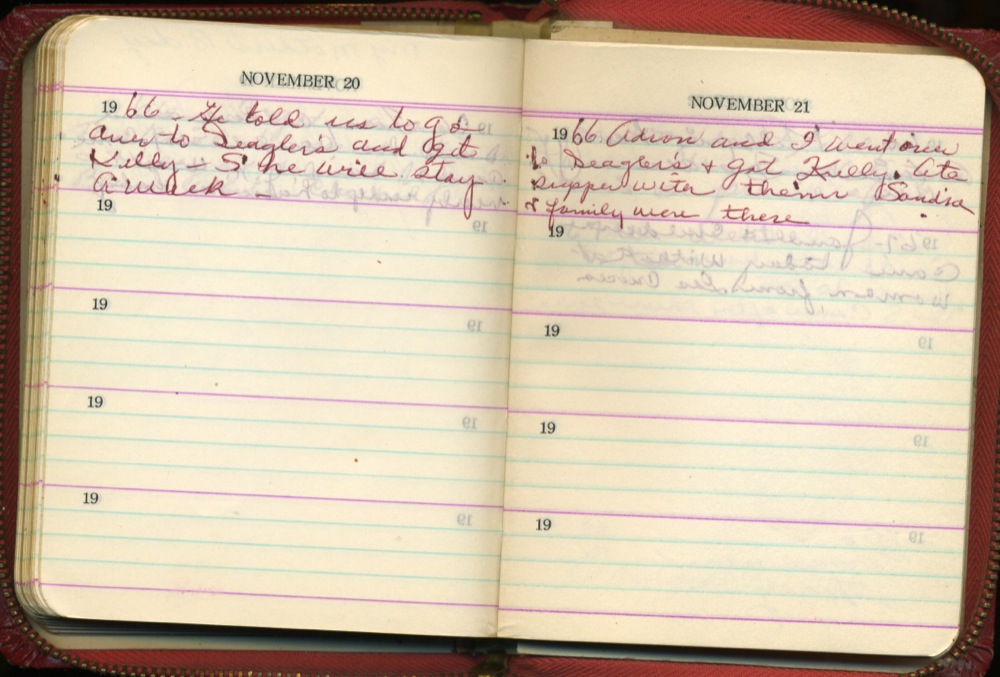 NOVEMBER 20
1966 - told us to go
over to Deagler's and get
Kelly - S he will stay
a week -
19
19
19
19
NOVEMBER 21
1966 and I went over
to Deagler's & got Kelly. Ate
supper with them Sandra
& family were there
19
19
19
19